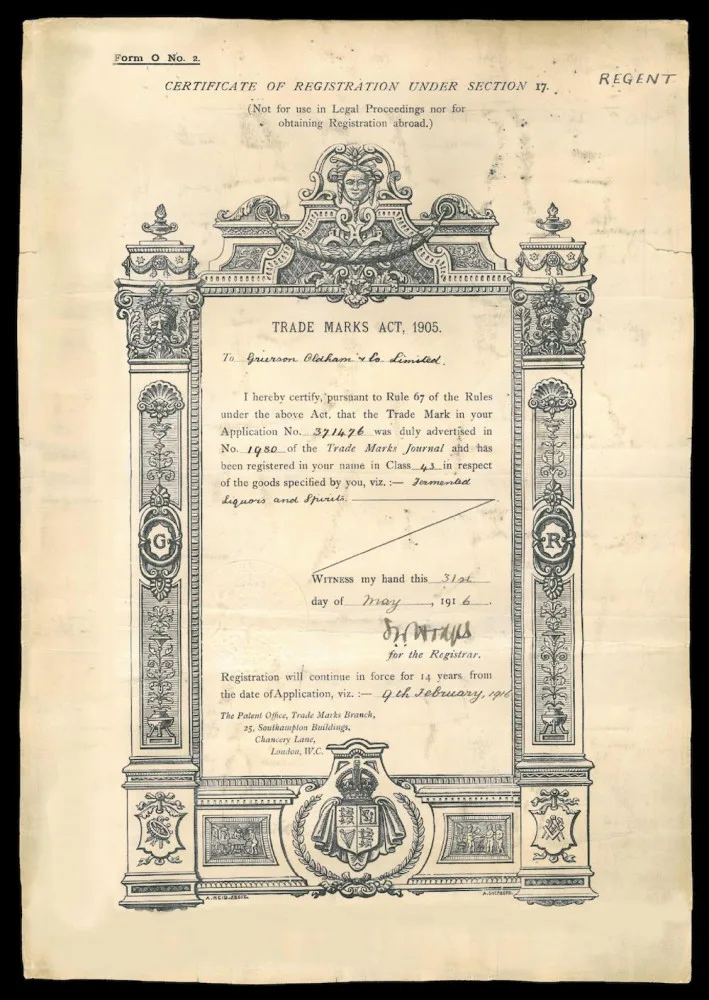 Form O No. 2.
CERTIFICATE OF REGISTRATION UNDER SECTION 17.
REGENT
(Not for use in Legal Proceedings nor for
obtaining Registration abroad.)
TRADE MARKS ACT, 1905.
To Grierson Oldham & Co. Limited.
I hereby certify, pursuant to Rule 67 of the Rules
under the above Act, that the Trade Mark in your
Application No. 371476 was duly advertised in
No. 1980 of the Trade Marks Journal and has
been registered in your name in Class 43 in respect
of the goods specified by you, viz. :— Fermented
Liquors and Spirits.
G
R
WITNESS my hand this 31st
day of May, 1916.
for the Registrar.
Registration will continue in force for 14 years from
the date of Application, viz. :— 9th February, 1916
The Patent Office, Trade Marks Branch,
25, Southampton Buildings,
Chancery Lane,
London, W.C.